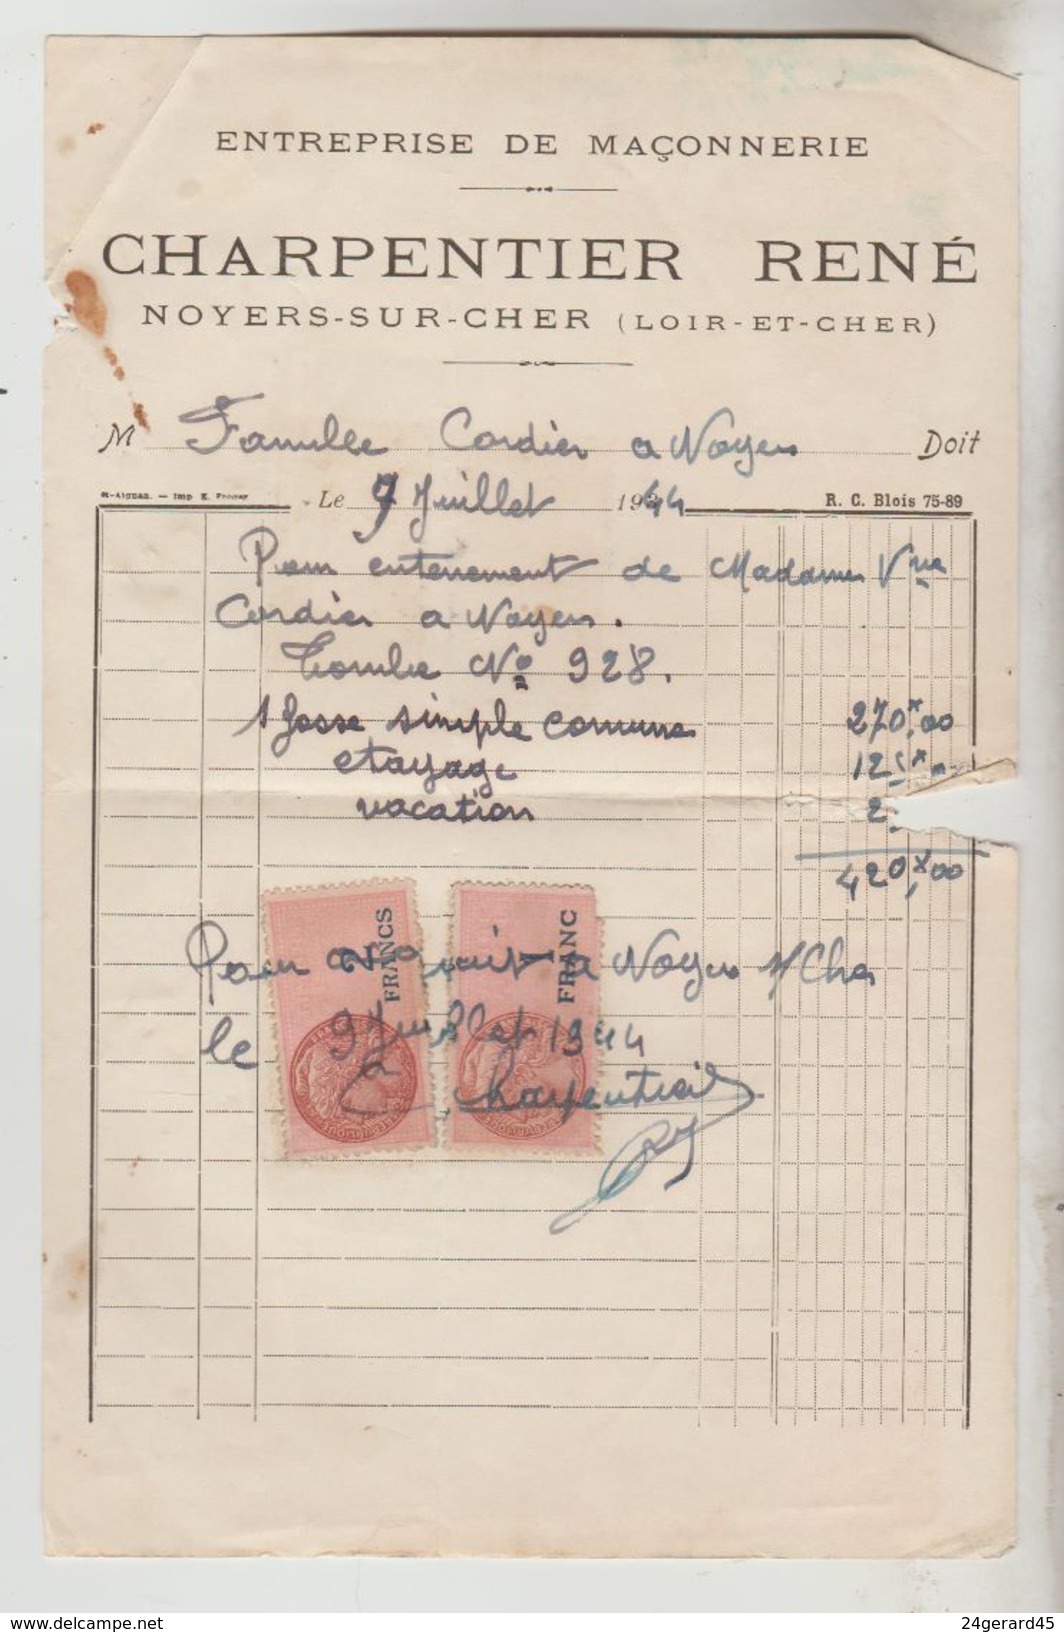 ENTREPRISE DE MAÇONNERIE
CHARPENTIER RENÉ
NOYERS-SUR-CHER (LOIR-ET-CHER)
M Famille Cordier a Noyers Doit
St-Aignan. — Imp E. Le 9 Juillet 1944 R. C. Blois 75-89
Pour enterrement de Madame Vve
Cordier a Noyers.
Tombe No 928.
1 fosse simple comune 270,x00
etayage 125x
vacation 2
420,x00
2 FRANCS
1 FRANC
Pour acquit a Noyers s/Cher
le 9 Juillet 1944
Charpentier
www.delcampe.net
24gerard45